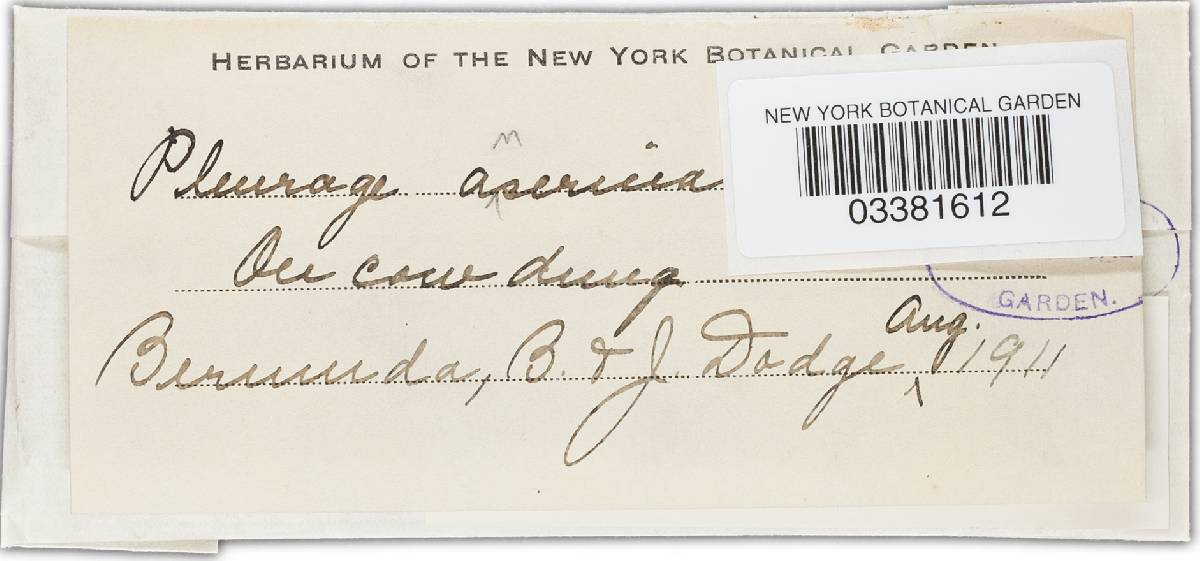 HERBARIUM OF THE NEW YORK BOTANICAL GARDEN
NEW YORK BOTANICAL GARDEN
03381612
Pleurage anserina
On cow dung
GARDEN.
Bermuda, B. & J. Dodge Aug. 1911